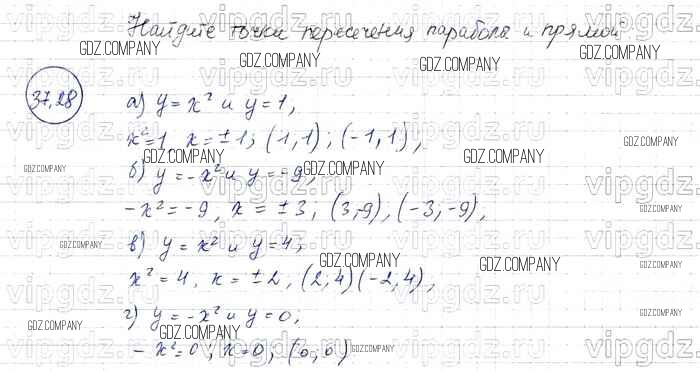 Найдите точки пересечения параболы и прямой
37.28
а) y = x² и y = 1,
x² = 1, x = ± 1; (1, 1); (-1, 1),
б) y = -x² и y = -9,
-x² = -9, x = ± 3; (3, -9), (-3, -9),
в) y = x² и y = 4,
x² = 4, x = ± 2, (2; 4) (-2, 4),
г) y = -x² и y = 0,
- x² = 0; x = 0, (0, 0)
GDZ.COMPANY
vipgdz.ru